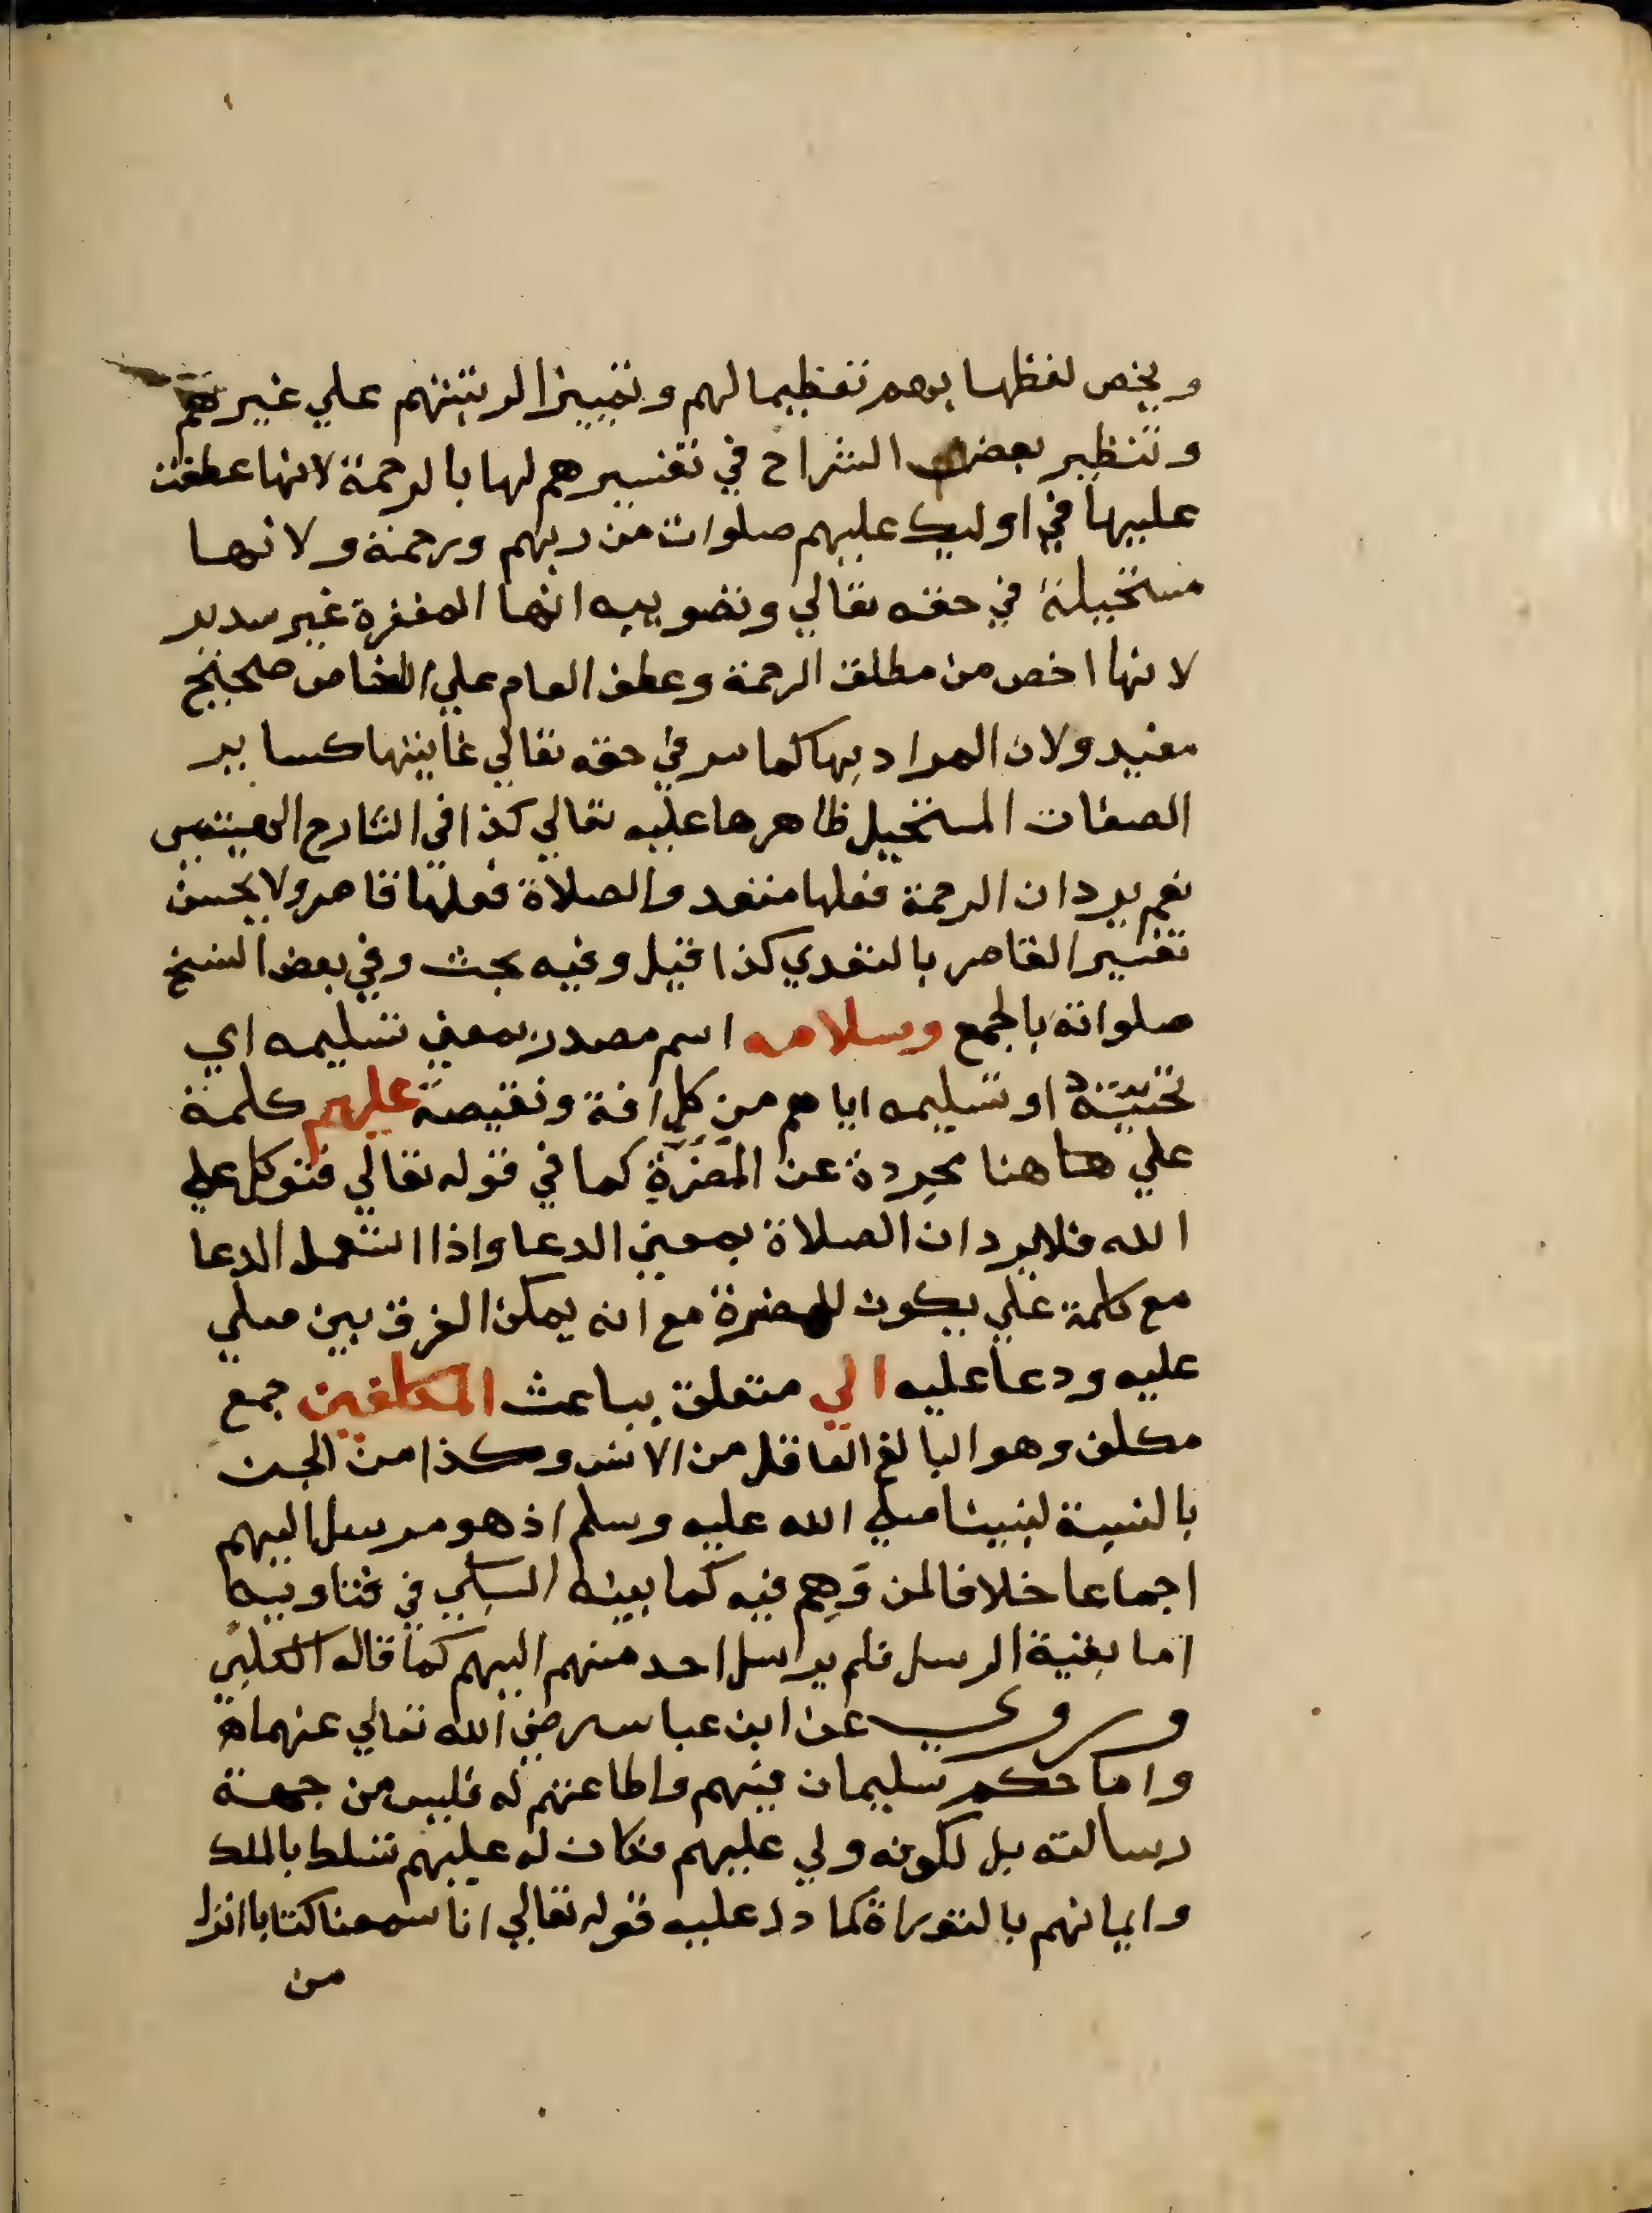 ويخص لفظها بهم تعظيما لهم وتمييزا لرتبتهم علي غيرهم
وتنظير بعض الشراح في تفسيرهم لها بالرحمة لانها عطفت
عليها في اوليك عليهم صلوات من ربهم ورحمة ولانها
مستحيلة في حقه تعالي وتصويبه انها المغفرة غير سديد
لانها اخص من مطلق الرحمة وعطف العام علي الخاص صحيح
مفيد ولان المراد بها كما مر في حقه تعالي غايتها كساير
الصفات المستحيل ظاهرها عليه تعالي كذا في الشارح الهيتمي
نعم يرد ان الرحمة فعلها متعد والصلاة فعلها قاصر ولا يحسن
تفسير القاصر بالتعدي كذا قيل وفيه بحث وفي بعض النسخ
صلواته بالجمع وسلامه اسم مصدر بمعني تسليمه اي
تحيته او تسليمه اياهم من كل افة ونقيصة عليهم كلمة
علي هاهنا مجردة عن المضرة كما في قوله تعالي فتوكل علي
الله فلا يرد ان الصلاة بمعني الدعا واذا استعمل الدعا
مع كلمة علي يكون للمضرة مع انه يمكن الفرق بين صلي
عليه ودعا عليه الي متعلق بباعث المكلفين جمع
مكلف وهو البالغ العاقل من الانس وكذا من الجن
بالنسبة لنبينا صلي الله عليه وسلم اذ هو مرسل اليهم
اجماعا خلافا لمن وهم فيه كما بينه السبكي في فتاويه
اما بقية الرسل فلم يرسل احد منهم اليهم كما قاله الكلبي
وروي عن ابن عباس رضي الله تعالي عنهما
واما حكم سليمان فيهم واطاعتهم له فليس من جهة
رسالته بل لكونه ولي عليهم فكان له عليهم تسلط بالملك
وايمانهم بالتوراة كما دل عليه قوله تعالي انا سمعنا كتابا انزل
من